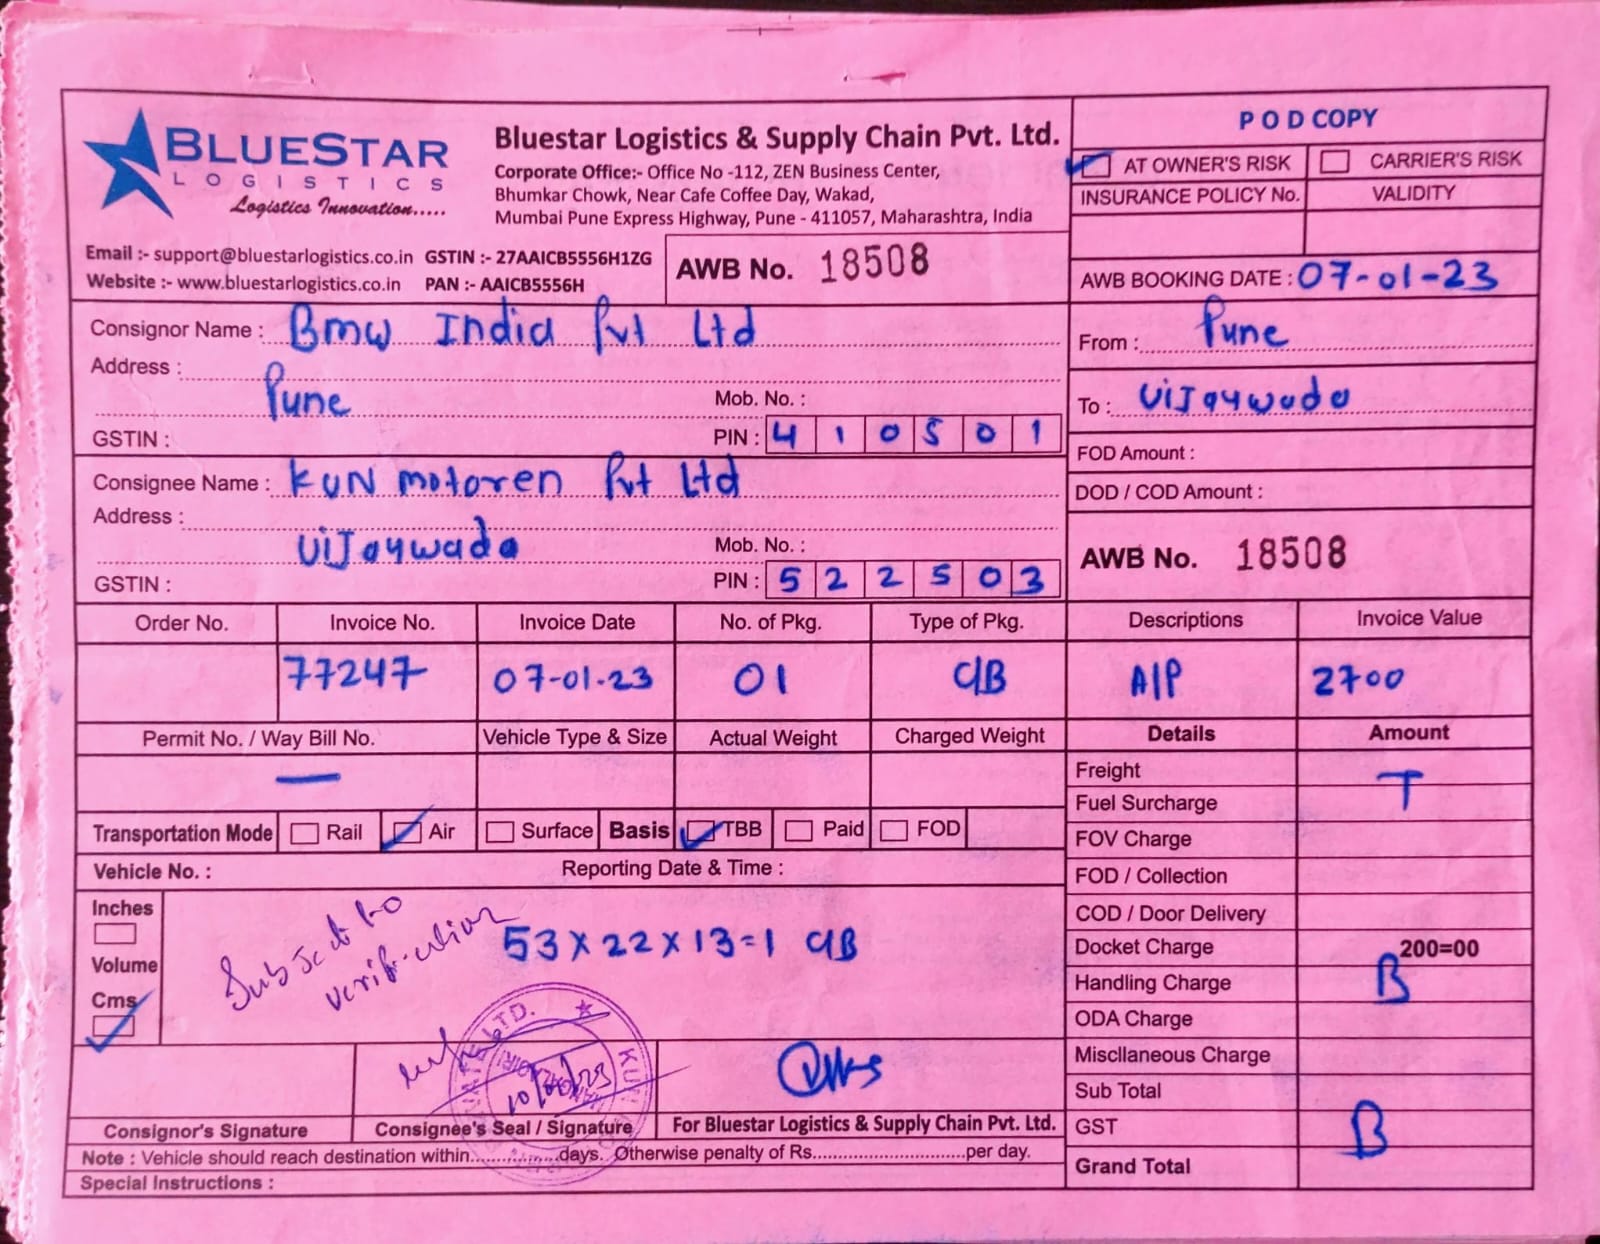 BLUESTAR
LOGISTICS
Logistics Innovation.....
Bluestar Logistics & Supply Chain Pvt. Ltd.
Corporate Office:- Office No -112, ZEN Business Center,
Bhumkar Chowk, Near Cafe Coffee Day, Wakad,
Mumbai Pune Express Highway, Pune - 411057, Maharashtra, India
Email :- support@bluestarlogistics.co.in GSTIN :- 27AAICB5556H1ZG
Website :- www.bluestarlogistics.co.in PAN :- AAICB5556H
AWB No. 18508
POD COPY
AT OWNER'S RISK CARRIER'S RISK
INSURANCE POLICY No. VALIDITY
AWB BOOKING DATE : 07-01-23
Consignor Name : Bmw India Pvt Ltd
Address :
Pune
Mob. No. :
GSTIN :
PIN : 410501
From : Pune
To : ViJaywada
Consignee Name : KUN motoren Pvt Ltd
Address :
ViJaywada
Mob. No. :
GSTIN :
PIN : 522503
FOD Amount :
DOD / COD Amount :
AWB No. 18508
Order No. Invoice No. Invoice Date No. of Pkg. Type of Pkg. Descriptions Invoice Value
77247 07-01-23 01 C/B A/P 2700
Permit No. / Way Bill No. Vehicle Type & Size Actual Weight Charged Weight
—
Transportation Mode Rail Air Surface Basis TBB Paid FOD
Vehicle No. : Reporting Date & Time :
Inches
Volume
Cms
Subject to
verification
53 x 22 x 13 = 1 C/B
Details Amount
Freight
T
Fuel Surcharge
FOV Charge
FOD / Collection
COD / Door Delivery
Docket Charge 200=00
B
Handling Charge
ODA Charge
Miscllaneous Charge
Sub Total
GST B
Grand Total
LTD.
KUN
Consignor's Signature Consignee's Seal / Signature For Bluestar Logistics & Supply Chain Pvt. Ltd.
Note : Vehicle should reach destination within..............days. Otherwise penalty of Rs............................per day.
Special Instructions :